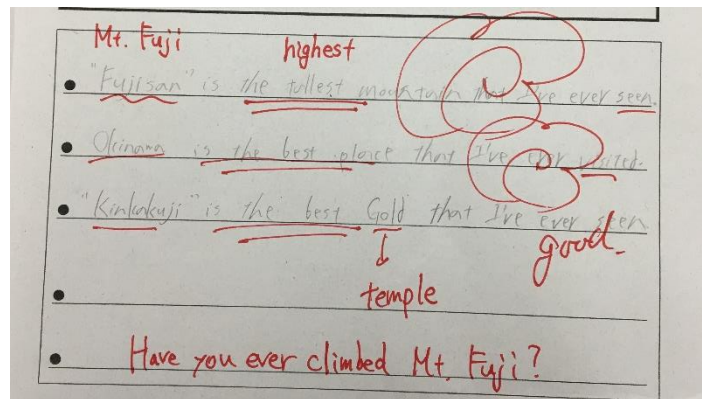 Mt. Fuji highest
"Fujisan" is the tallest mountain that I've ever seen.
Okinawa is the best place that I've ever visited.
"Kinkakuji" is the best Gold that I've ever seen
good.
temple
Have you ever climbed Mt. Fuji?